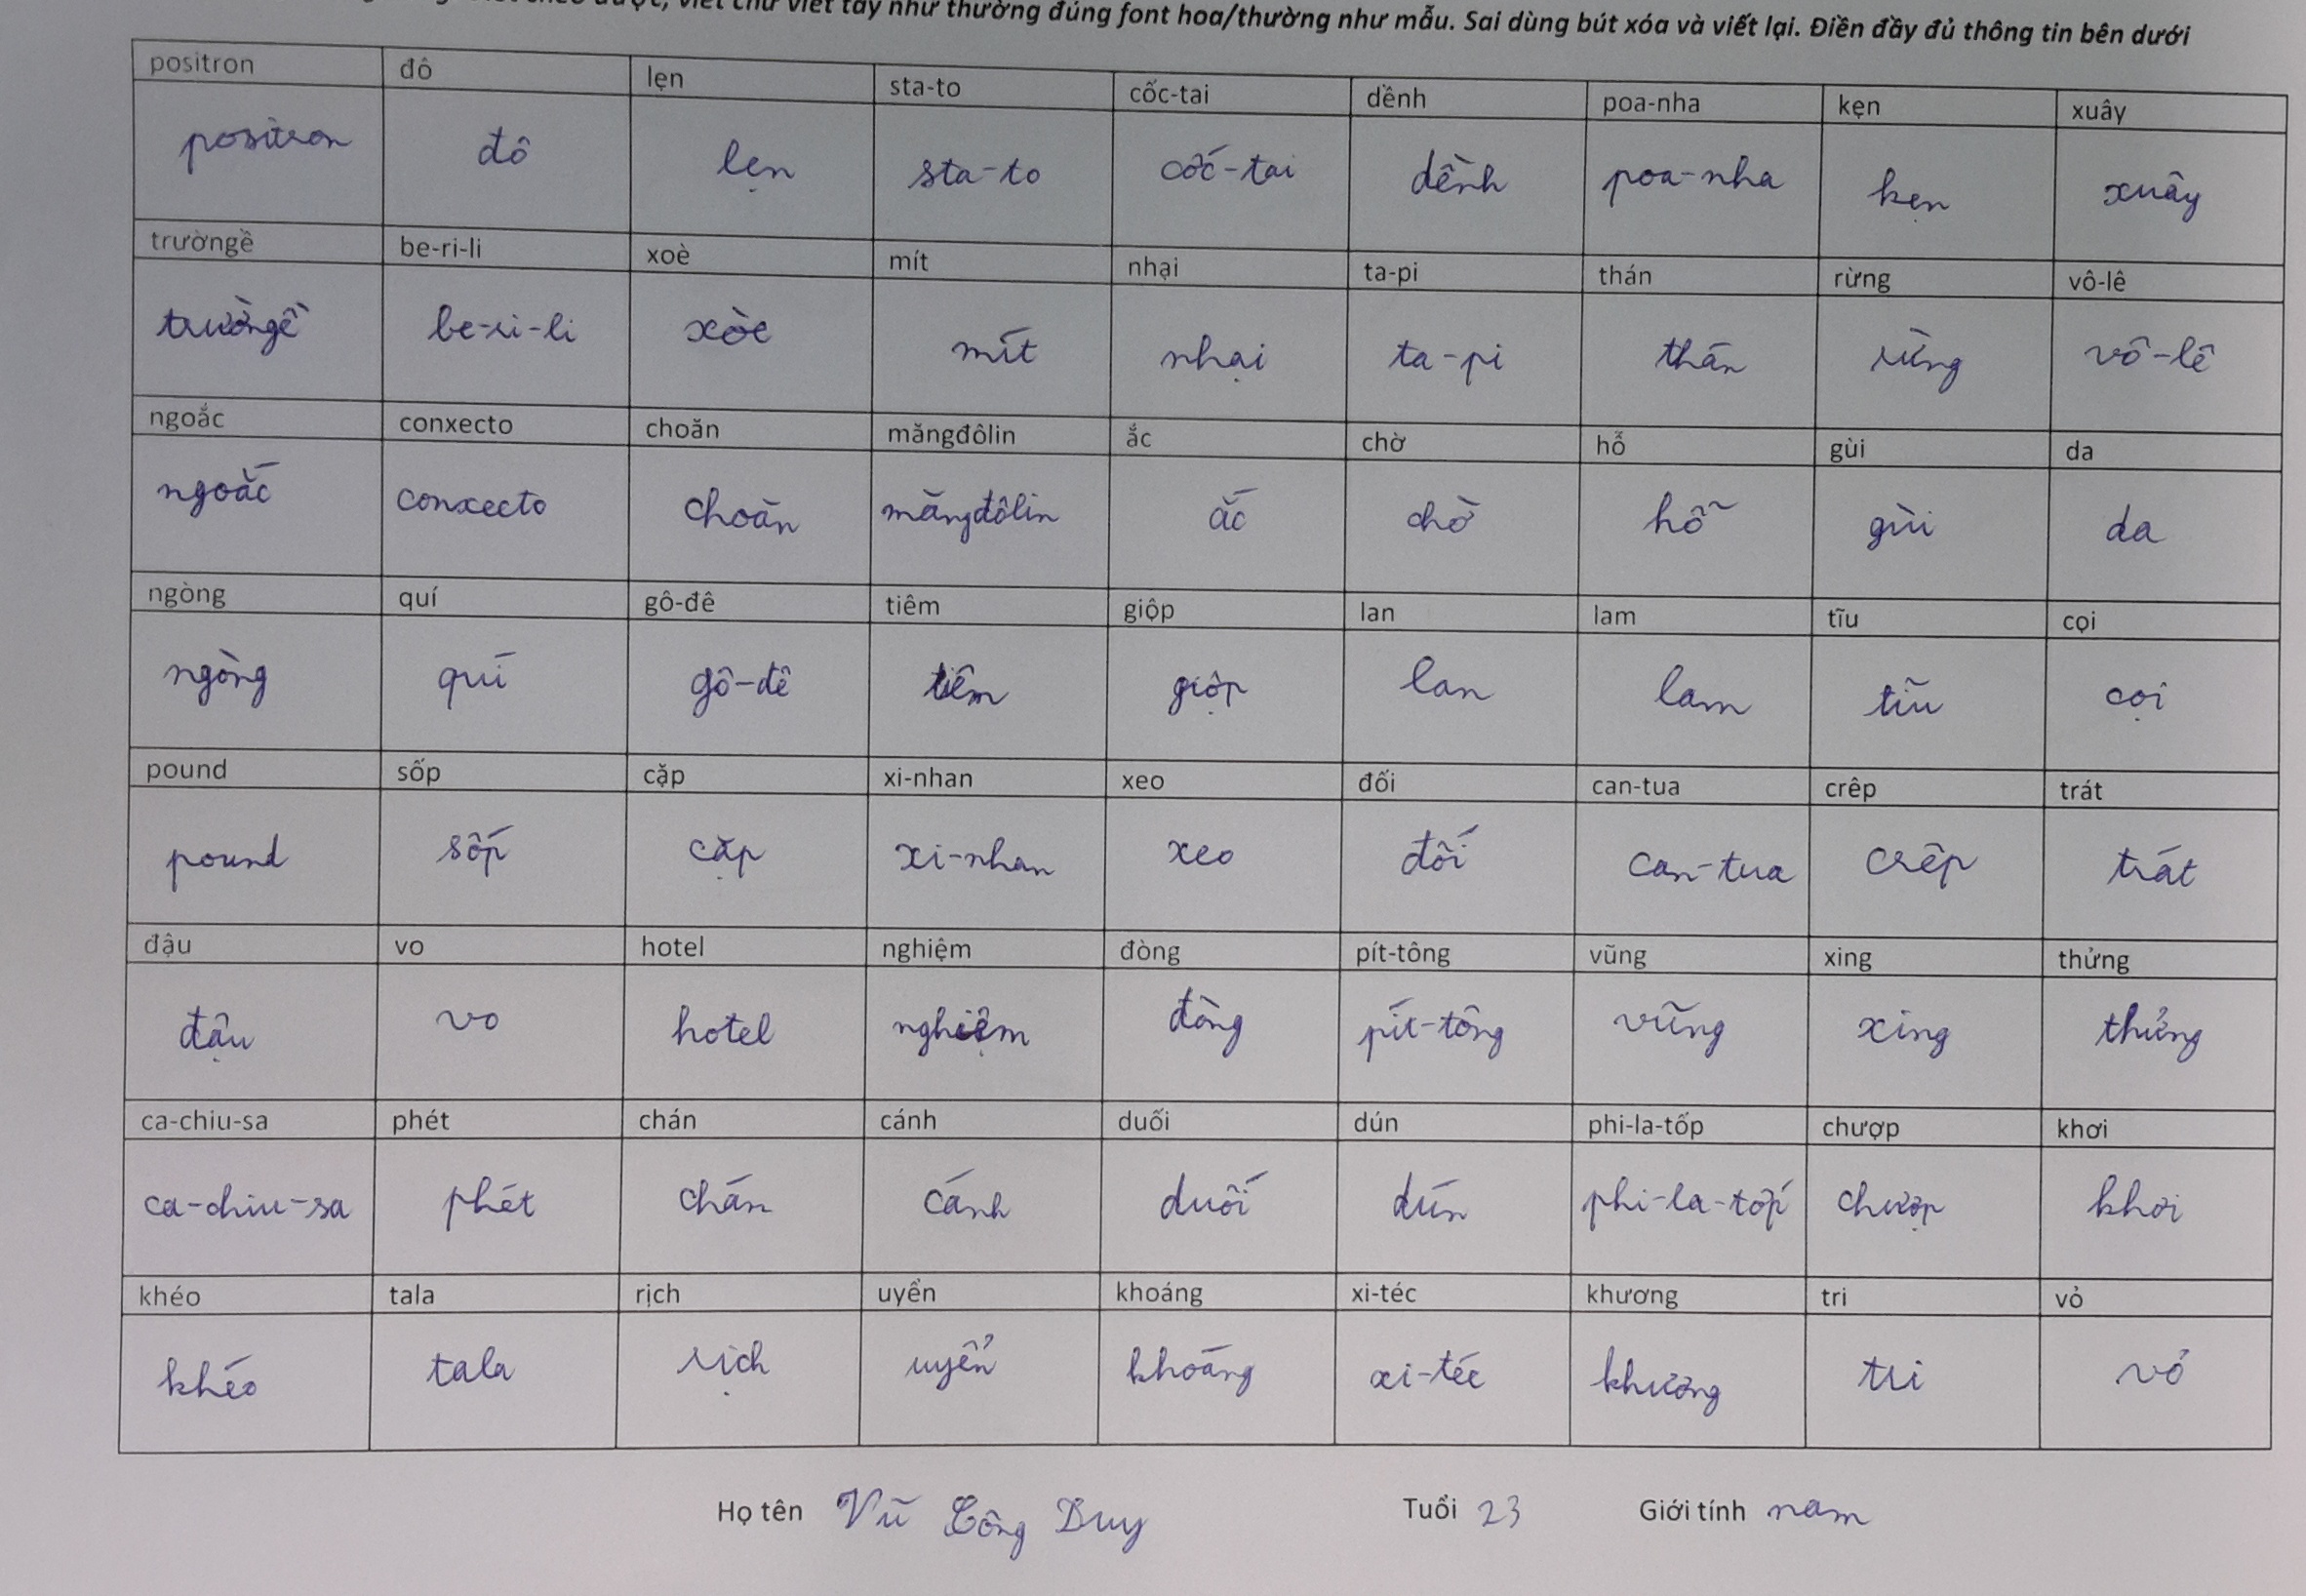 viết chữ viết tay như thường đúng font hoa/thường như mẫu. Sai dùng bút xóa và viết lại. Điền đầy đủ thông tin bên dưới
positron đô lẹn sta-to cốc-tai dềnh poa-nha kẹn xuây
positron đô lẹn sta-to cốc-tai dềnh poa-nha kẹn xuây
trườngề be-ri-li xoè mít nhại ta-pi thán rừng vô-lê
trườngề be-ri-li xòe mít nhại ta-pi thán rừng vô-lê
ngoắc conxecto choăn măngđôlin ắc chờ hỗ gùi da
ngoắc conxecto choăn măngđôlin ắc chờ hỗ gùi da
ngòng quí gô-đê tiêm giộp lan lam tĩu cọi
ngòng quí gô-đê tiêm giộp lan lam tĩu cọi
pound sốp cặp xi-nhan xeo đối can-tua crêp trát
pound sốp cặp xi-nhan xeo đối can-tua crêp trát
đậu vo hotel nghiệm đòng pít-tông vũng xing thửng
đậu vo hotel nghiệm đòng pít-tông vũng xing thửng
ca-chiu-sa phét chán cánh duối dún phi-la-tốp chượp khơi
ca-chiu-sa phét chán cánh duối dún phi-la-tốp chượp khơi
khéo tala rịch uyển khoáng xi-téc khương tri vỏ
khéo tala rịch uyển khoáng xi-téc khương tri vỏ
Họ tên Vũ Công Duy Tuổi 23 Giới tính nam